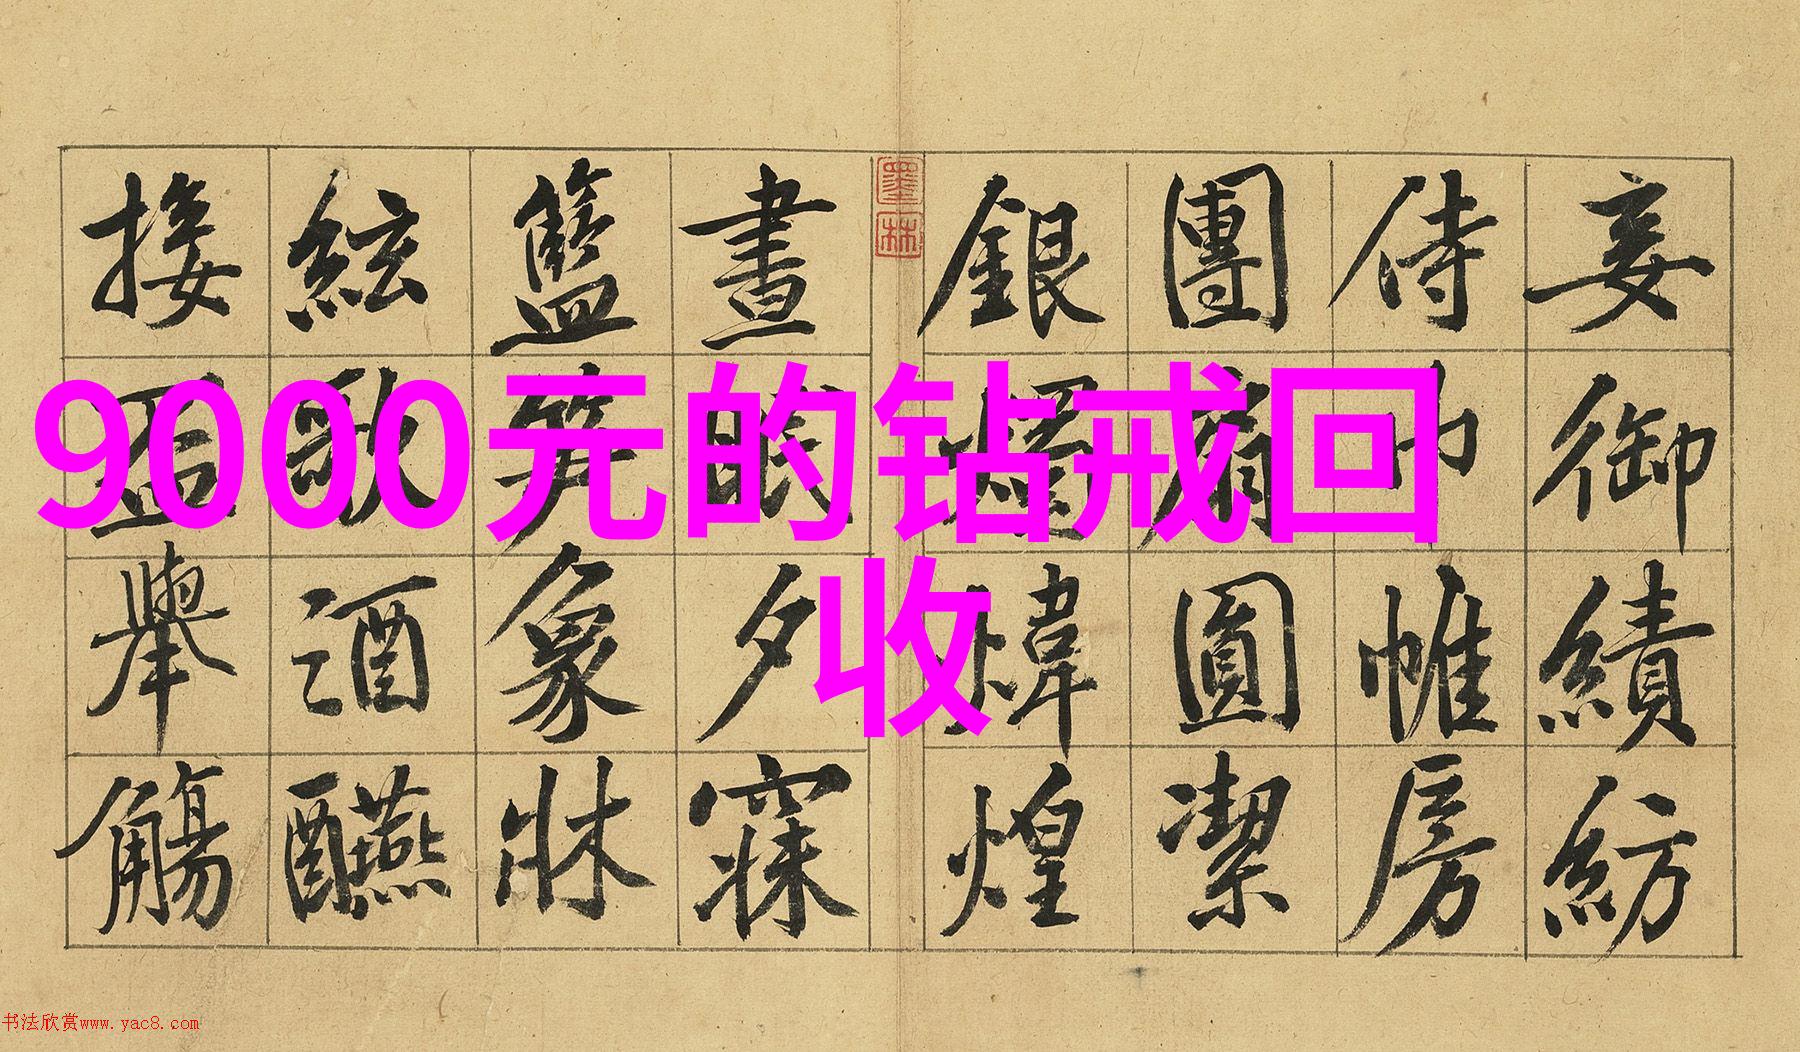 9000元的钻戒回
收
妾御績紡
侍巾帷房
團扇圓潔
銀燭煒煌
墨林
晝眠夕寐
籃笋象牀
絃歌酒醼
接盃舉觴
书法欣赏www.yac8.com